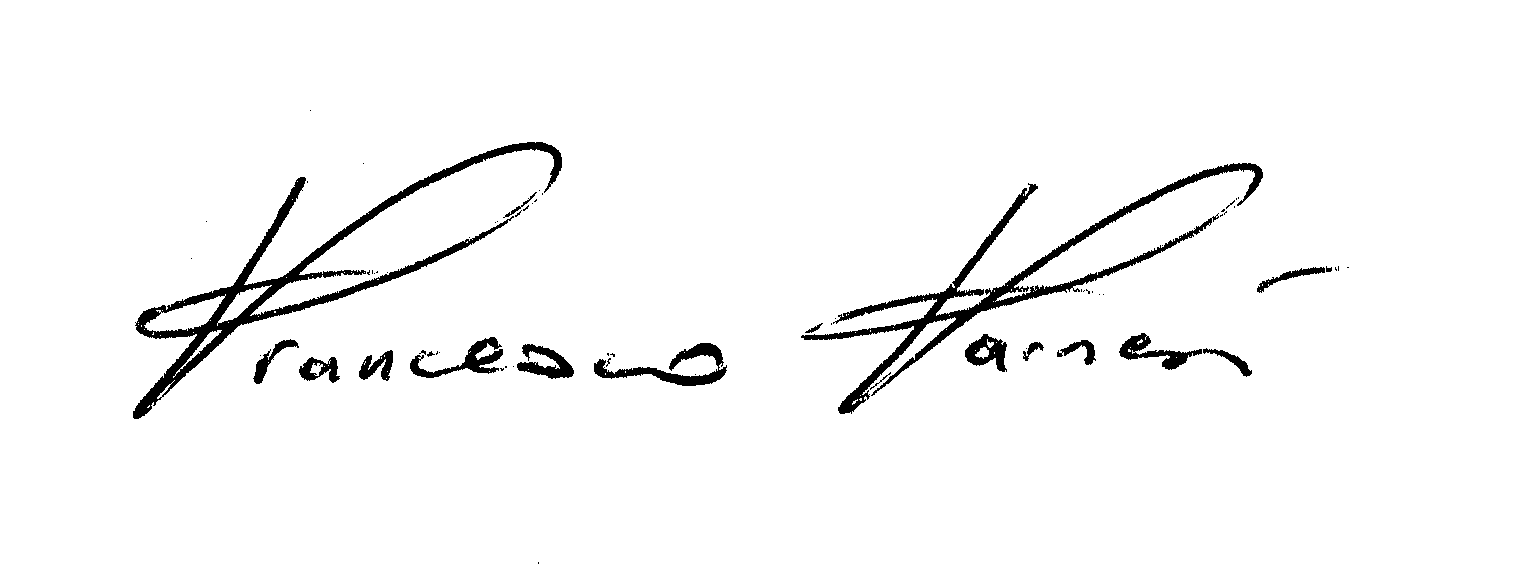 Francesco Farnesi